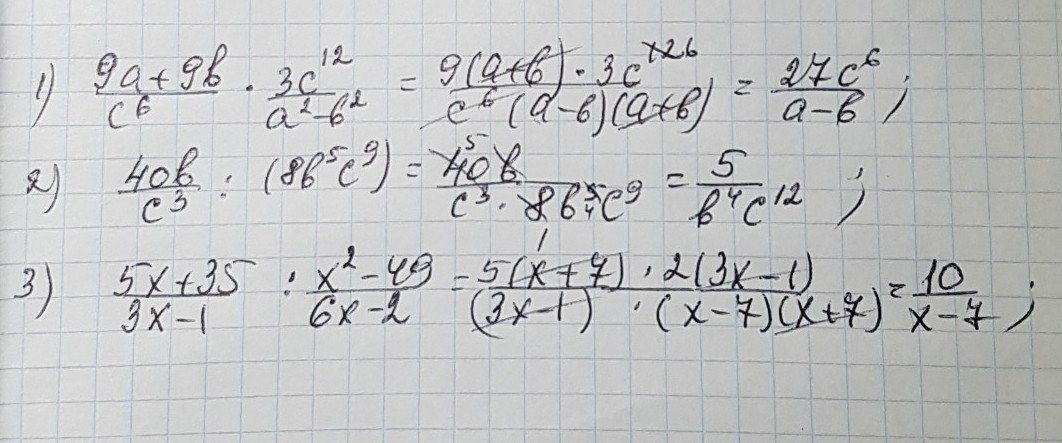 1) (9a+9b)/c^6 · 3c^12/(a^2-b^2) = 9(a+b)·3c^12 6/(c^6(a-b)(a+b)) = 27c^6/(a-b);
2) 40b/c^3 : (8b^5c^9) = 5 40b/(c^3·8b^5 4c^9) 1 = 5/(b^4c^12);
3) (5x+35)/(3x-1) : (x^2-49)/(6x-2) = 5(x+7)·2(3x-1)/((3x-1)·(x-7)(x+7)) = 10/(x-7);